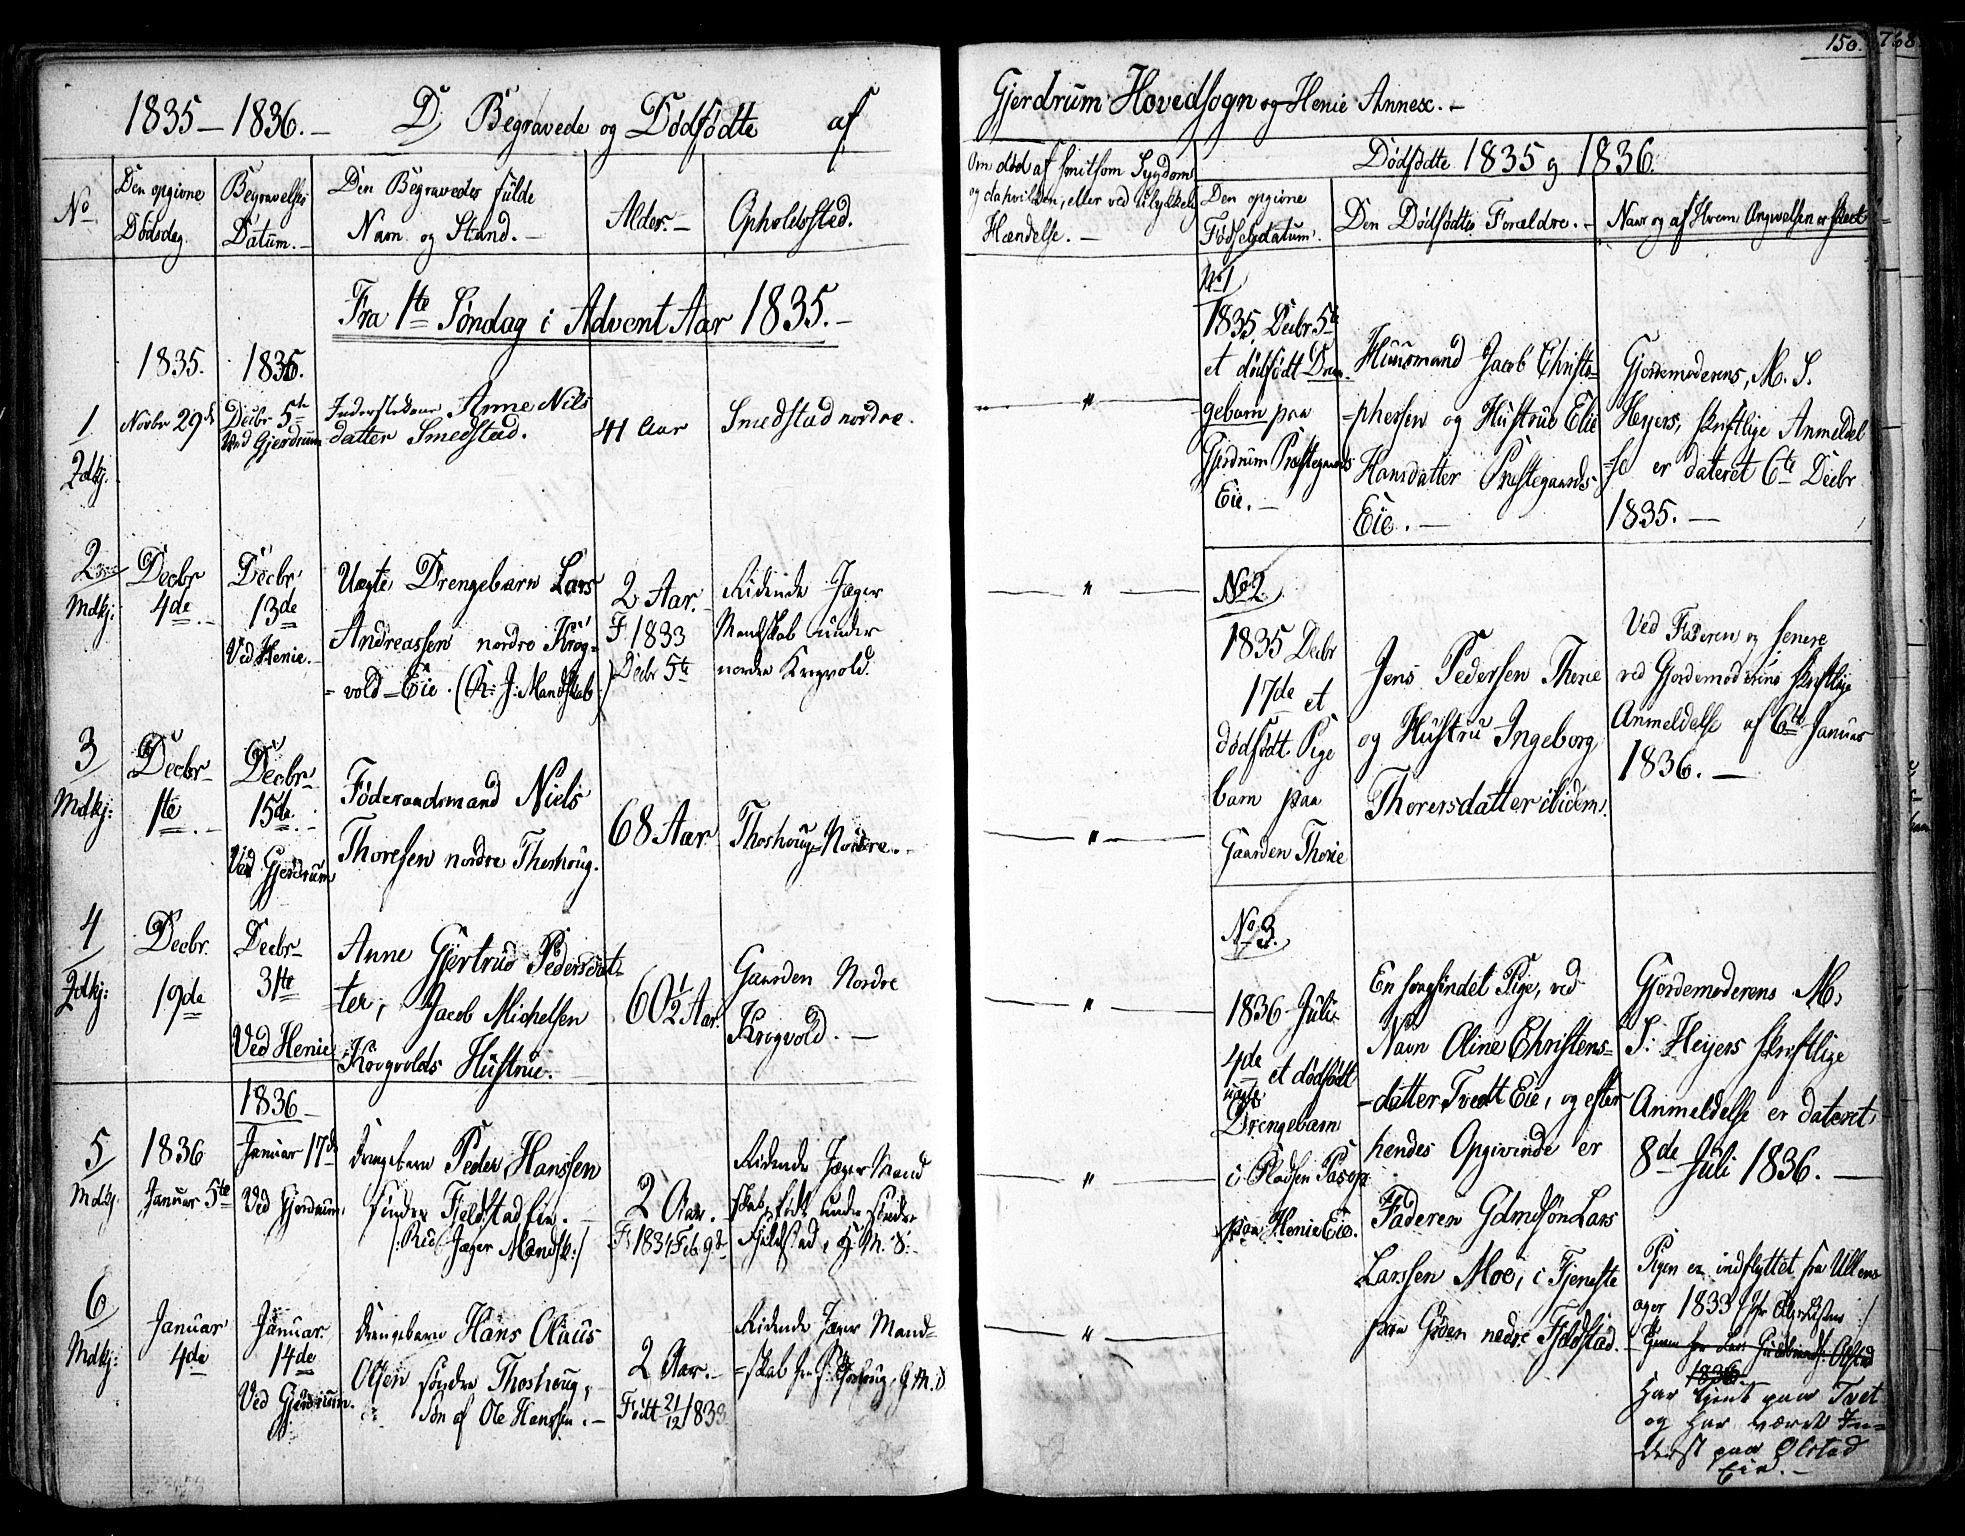 150.
768
1835 — 1836. — D, Begravede og Dødfødte af
Gjerdrum Hovedsogn og Henie Annex. —
No
Den opgivne
Dødsdag.
Begravelses
Datum. —
Den Begravedes fulde
Navn og Stand. —
Alder. —
Opholdsstad.
Om død af smitsom Sygdom
og da hvilken, eller ved ulykkelig
Hændelse. —
Dødfødte 1835 og 1836.
Den opgivne
Fødselsdatum.
Den Dødfødtes Forældre. —
Naar og af Hvem Angivelsen er skeet
Fra 1te Søndag i Advent Aar 1835. —
1835.
1835.
1
Qvdkj:
Novbr 29de
Decbr 5te
Ved Gjerdrum
Anne Nils
datter Smedstad.
41 Aar
Smedstad nordre.
"
2
Mdkj:
Decbr
4de. —
Decbr
13de
Ved Henie. —
Uægte Drengebarn Lars
Andreassen nordre Krog-
vold-Eie. (R: J: Mandskab)
2 Aar.
F. 1833
Decbr 5te
Ridende Jæger
Mandskab under
nordre Krogvold.
"
3
Mdkj:
Decbr
1te. —
Decbr
15de. —
Ved Gjerdrum
Føderaadsmand Niels
Thoresen nordre Thoshoug.
68 Aar
Thoshoug Nordre. —
"
4
Qdkj:
Decbr.
19de
Decbr
31te
Ved Henie
Anne Gjertrud Pedersdat-
ter, Jacob Michelsen
Krogvolds Hustrue. —
60½ Aar.
Gaarden Nordre
Krogvold. —
"
1836
5
Mdkj.
1836
Januar 5te
Januar 17de
Ved Gjerdrum.
Drengebarn Peder Hanssen
søndre Fjeldstad Eie. —
/: Rid: Jæger Mandsk:/
2 Aar. —
F. 1834 Feb. 9de
Ridende Jæger Mand
skab, født under søndre
Fjeldstad, G. M. S. —
"
6
Mdkj:
Januar
4de
Januar.
14de
Ved Gjerdrum.
Drengebarn Hans Olaus
Olsen søndre Thoshoug,
Søn af Ole Hanssen. —
2 Aar. —
Født 21/12 1833
Ridende Jæger Mand-
skab fra S: Thoshoug, G. M. S
"
No 1
1835 Decbr 5te
et dødfødt Dren-
gebarn paa
Gjerdrum Præstegaards
Eie. —
Huusmand Jacob Christo-
phersen og Hustrue Elie
Hansdatter Præstegaards
Eie. —
Gjordemoderens, M. S.
Heyers, skriftlige Anmeldel
se er dateret 6te Decbr
1835. —
No 2.
1835 Decbr
17de et
dødfødt Pige
barn paa
Gaarden Therie
Jens Pedersen Therie
og Hustru Ingeborg
Thorersdatter ibidem.
Ved Faderen og senere
ved Gjordemoderens skriftlige
Anmeldelse af 6te Januar
1836. —
No 3.
1836 Juli
4de et dødfødt
uægte
Drengebarn
i Pladsen Pasop
paa Henie Eie.
En besvindet Pige, ved
Navn Oline Christens-
datter Tvedt Eie, og efter
hendes Opgivende er
Faderen Lars
Larssen Moe, i Tjeneste
paa nedre Fjeldstad.
Gjordemoderens M.
S: Heyers skriftlige
Anmeldelse er dateret
8de Juli 1836. —
Pigen er indflyttet fra Ullens-
ager 1833
1836.
Har tjent paa Tvet
og har været In-
derst paa Ølstad
Eie. —